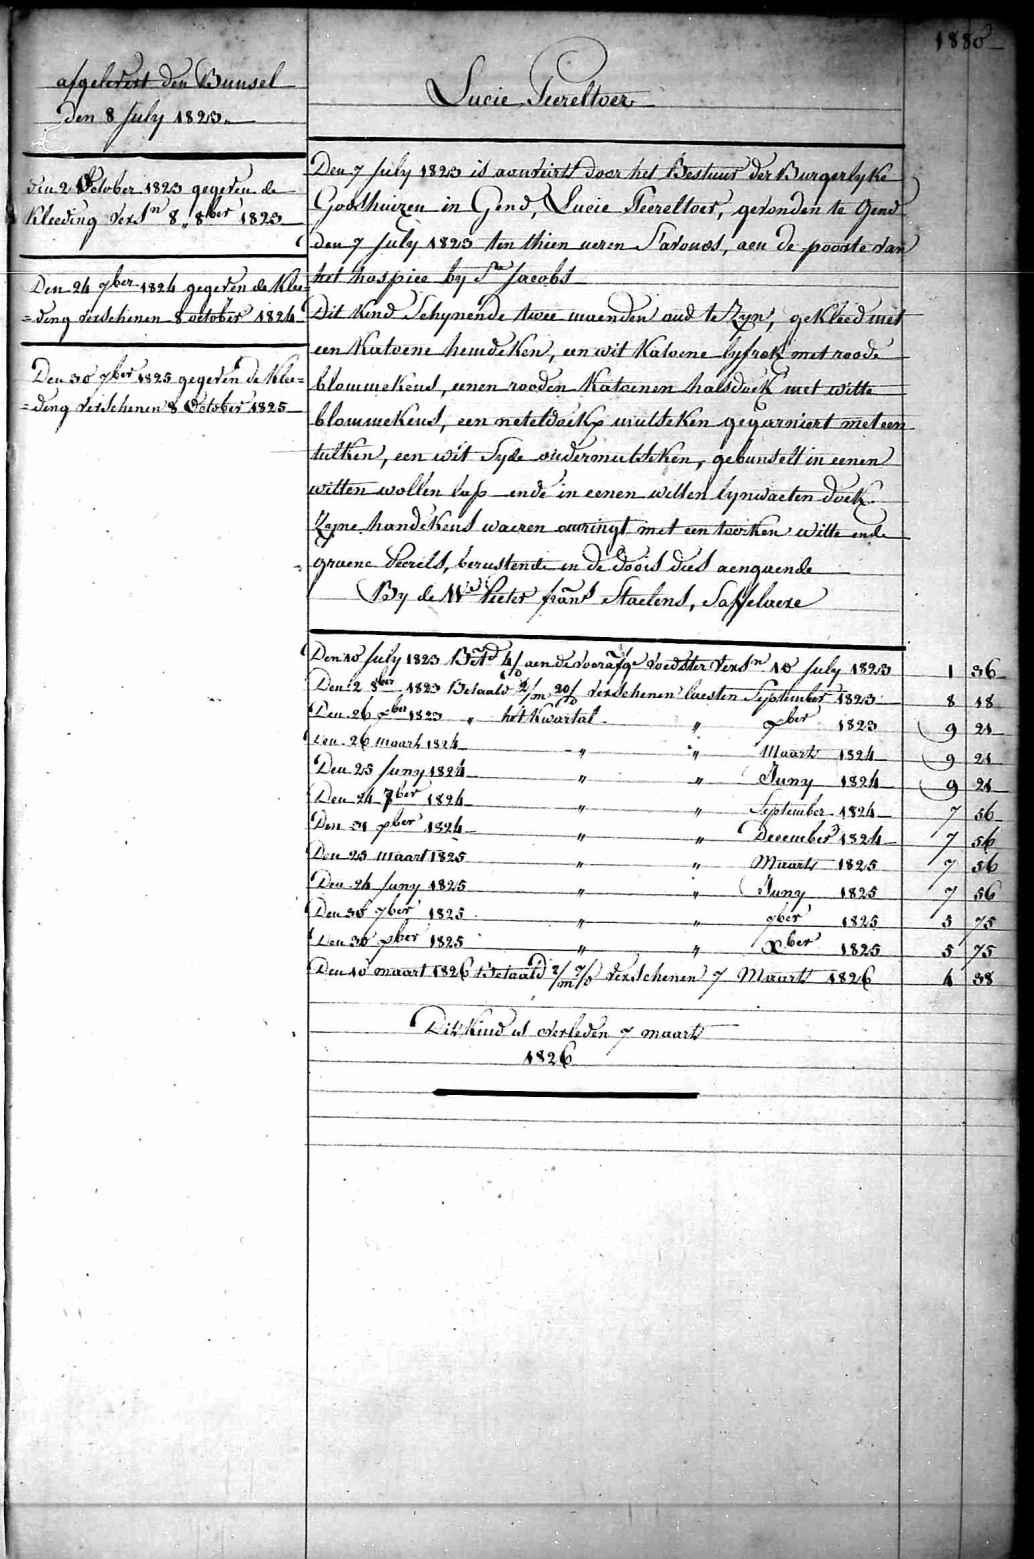 1880
afgelevert den Bunsel
den 8 July 1823.
Lucie Peereltoer
den 2 October 1823 gegeven de
Kleeding versn 8,, 8ber 1823
Den 24 7ber 1824 gegeven de Klee=
=ding verschenen 8 october 1824
Den 30 7ber 1825 gegeven de Klee=
=ding verschenen 8 October 1825
Den 7 July 1823 is aanveirt door het Bestuur der Burgerlyke
Godshuizen in Gend, Lucie Peereltoer, gevonden te Gend
den 7 July 1823 ten thien ueren S'avonds, aen de poorte van
het hospice by Ste Jacobs
Dit Kind Schynende twee maenden oud te Zyn, gekleed met
een Katoene hemdeken, een wit Katoene lyfrok met roode
blommekens, eenen rooden Katoenen halsdoek met witte
blommekens, een neteldoekx mutseken gegarniert met een
tulken, een wit Syde ondermutseken, gebunselt in eenen
witten wollen lap ende in eenen witten lynwaeten doek.
Zyne handekens waeren omringt met een toerken witte ende
groene Peerels, berustende in de doos dees aengaende
By de We Pieter frans Staelens, Saffelaere
Den 10 July 1823 Betd 4/ aen de voorafge voedster versn 10 July 1823 1 36
Den 2 8ber 1823 Betaald 2/m 20/ verschenen laesten September 1823 8 18
Den 26 xber 1823 " het Kwartal " xber 1823 9 21
Den 26 maart 1824 " " Maart 1824 9 21
Den 25 Juny 1824 " " Juny 1824 9 21
Den 24 7ber 1824 " " September 1824 7 56
Den 31 xber 1824 " " December 1824 7 56
Den 25 maart 1825 " " Maart 1825 7 56
Den 24 Juny 1825 " " Juny 1825 7 56
Den 30 7ber 1825 " " 7ber 1825 5 75
Den 30 xber 1825 " " Xber 1825 5 75
Den 10 maart 1826 Betaald 2/m 7/ verschenen 7 Maart 1826 4 38
Dit Kind is overleden 7 maart
1826